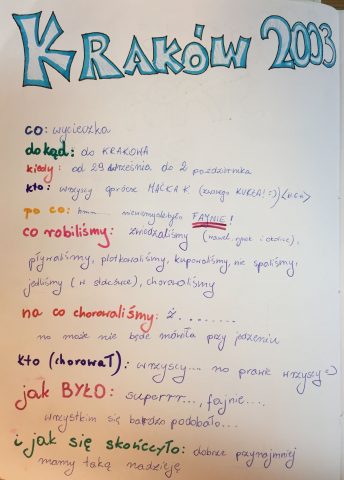 KRAKÓW 2003
co: wycieczka
dokąd: do KRAKOWA
kiedy: od 29 września do 2 października
kto: wszyscy oprócz MAĆKA K
po co: hmm... FAYNIE!
co robiliśmy: zwiedzaliśmy
pływaliśmy, plotkowaliśmy, kupowaliśmy, nie spaliśmy,
jedliśmy ( w stołówce), chorowaliśmy
na co chorowaliśmy: ż........
no może nie będę mówiła przy jedzeniu
kto (chorował): wszyscy... no prawie wszyscy
jak BYŁO: superrr..., fajnie....
wszystkim się bardzo podobało...
i jak się skończyło: dobrze przynajmniej
mamy taką nadzieję